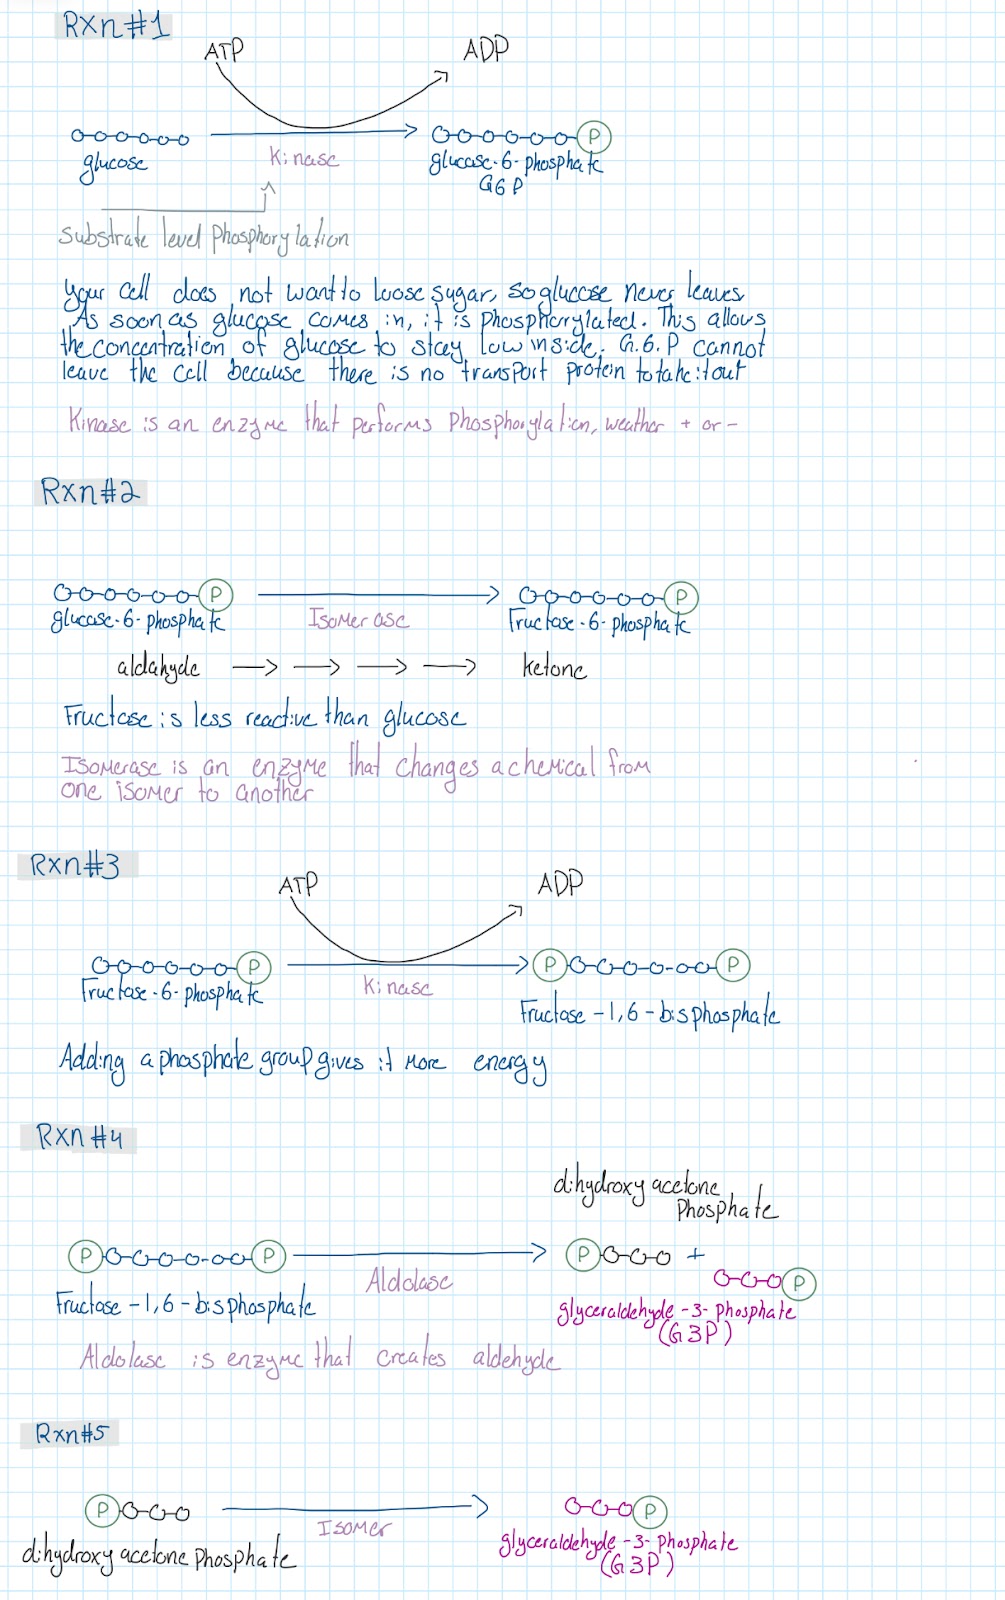 Rxn#1
ATP ADP
P
glucose Kinase glucose-6-phosphate
G6P
Substrate level Phosphorylation
Your cell does not want to loose sugar, so glucose never leaves
As soon as glucose comes in, it is phosphorylated. This allows
the concentration of glucose to stay low inside. G.6.P cannot
leave the cell because there is no transport protein to take it out
Kinase is an enzyme that performs Phosphorylation, weather + or -
Rxn#2
P P
glucose-6-phosphate Isomerase Fructose-6-phosphate
aldahyde ketone
Fructose is less reactive than glucose
Isomerase is an enzyme that changes a chemical from
one isomer to another
Rxn#3
ATP ADP
P P P
Fructose-6-phosphate Kinase Fructose-1,6-bisphosphate
Adding a phosphate group gives it more energy
Rxn#4
dihydroxy acetone
Phosphate
P P P +
Aldolase P
Fructose-1,6-bisphosphate glyceraldehyde-3-Phosphate
(G3P)
Aldolase is enzyme that creates aldehyde
Rxn#5
P P
Isomer
dihydroxy acetone Phosphate glyceraldehyde-3-Phosphate
(G3P)